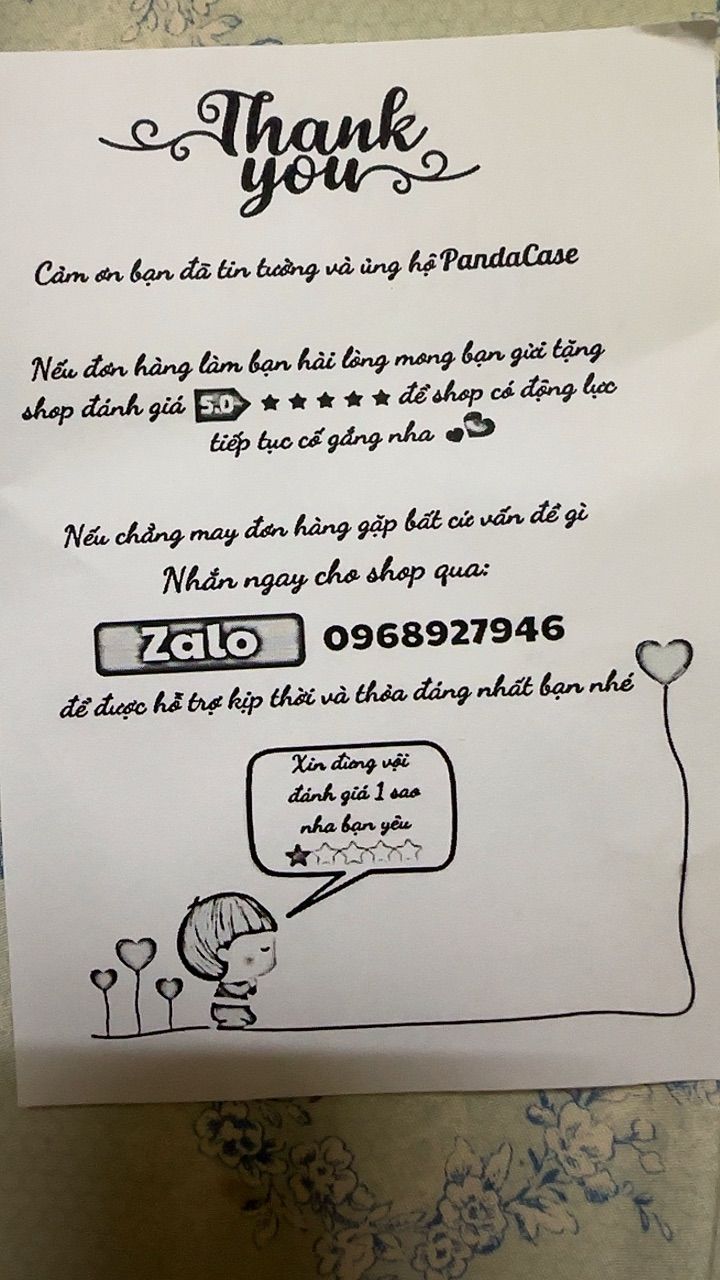 Thank
you
Cảm ơn bạn đã tin tưởng và ủng hộ PandaCase
Nếu đơn hàng làm bạn hài lòng mong bạn gửi tặng
shop đánh giá 5.0 ★ ★ ★ ★ ★ để shop có động lực
tiếp tục cố gắng nha
Nếu chẳng may đơn hàng gặp bất cứ vấn đề gì
Nhắn ngay cho shop qua:
Zalo 0968927946
để được hỗ trợ kịp thời và thỏa đáng nhất bạn nhé
Xin đừng vội
đánh giá 1 sao
nha bạn yêu
★☆☆☆☆